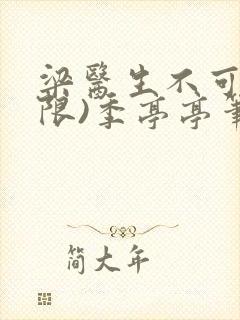 梁醫生不可
限)季亭亭筆
简大年